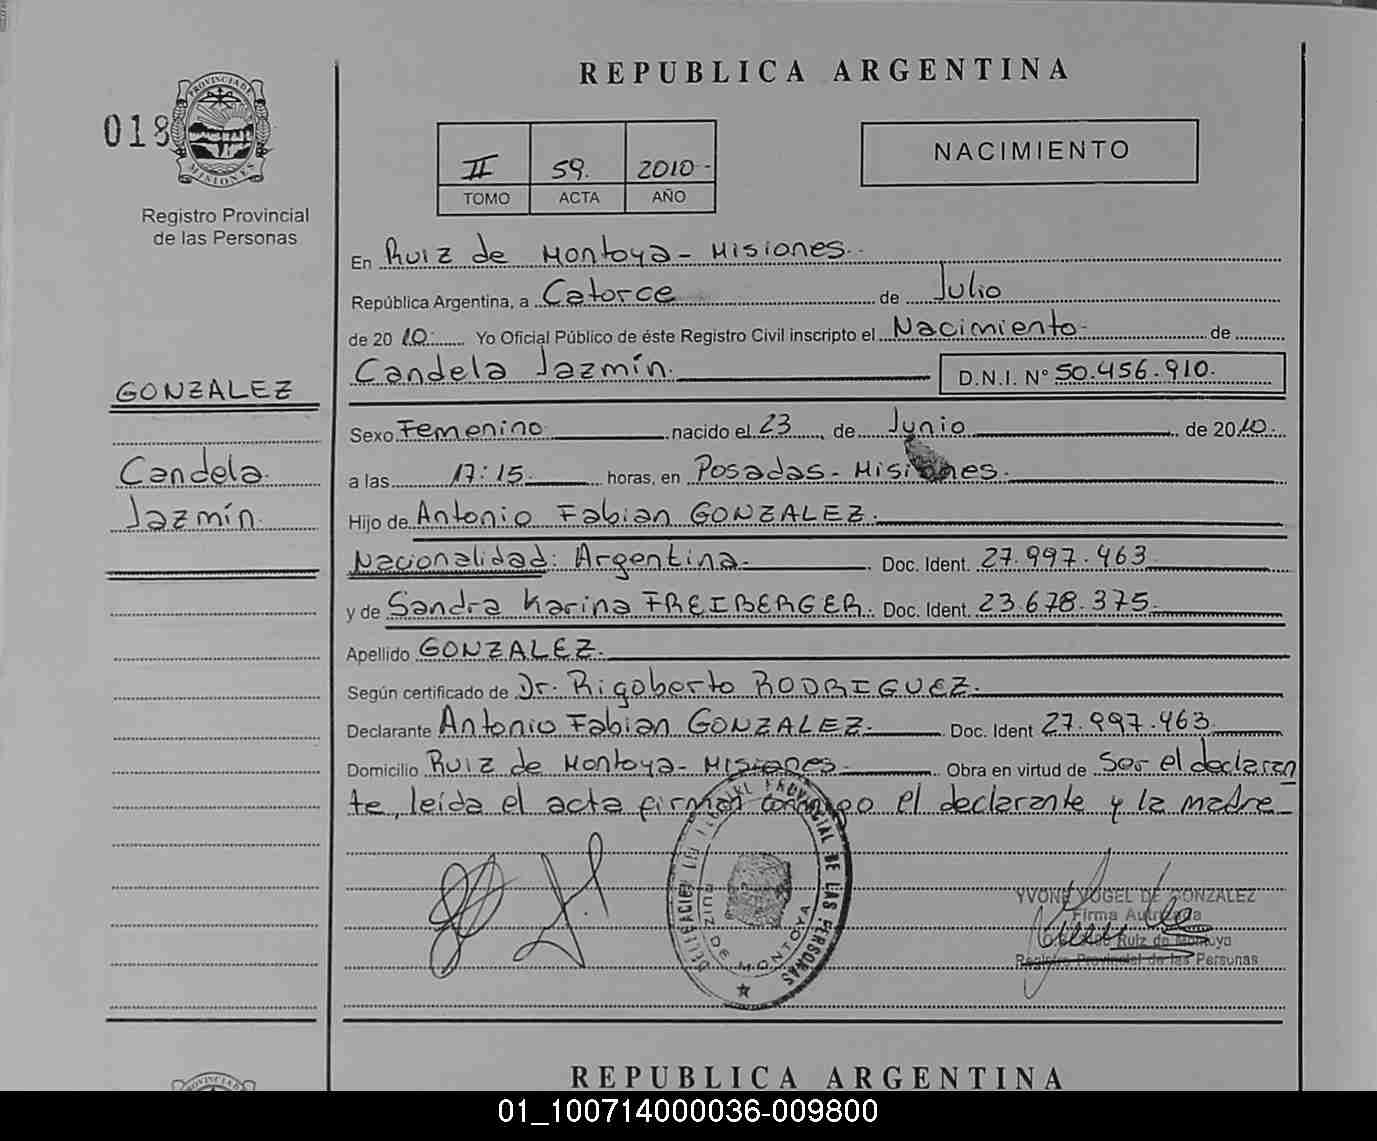 REPUBLICA ARGENTINA
018
PROVINCIA DE
MISIONES
Registro Provincial
de las Personas
II 59. 2010-
TOMO ACTA AÑO
NACIMIENTO
En Ruiz de Montoya - Misiones.
República Argentina, a Catorce de Julio
de 2010. Yo Oficial Público de éste Registro Civil inscripto el Nacimiento de
Candela Jazmín. D.N.I. N° 50.456.910.
GONZALEZ
Candela
Jazmín
Sexo Femenino nacido el 23 de Junio de 2010.
a las 17:15 horas, en Posadas - Misiones.
Hijo de Antonio Fabian GONZALEZ.
Nacionalidad: Argentina. Doc. Ident. 27.997.463
y de Sandra Karina FREIBERGER. Doc. Ident. 23.678.375.
Apellido GONZALEZ.
Según certificado de Dr. Rigoberto RODRIGUEZ.
Declarante Antonio Fabian GONZALEZ. Doc. Ident 27.997.463
Domicilio Ruiz de Montoya - Misiones Obra en virtud de Ser el declaran
te, leída el acta firman conmigo el declarante y la madre
DELEGACION DEL REGISTRO PROVINCIAL DE LAS PERSONAS
RUIZ DE MONTOYA
YVONE VOGEL DE GONZALEZ
Firma Autorizada
Ruiz de Montoya
Registro Provincial de las Personas
PROVINCIA DE
REPUBLICA ARGENTINA
01_100714000036-009800